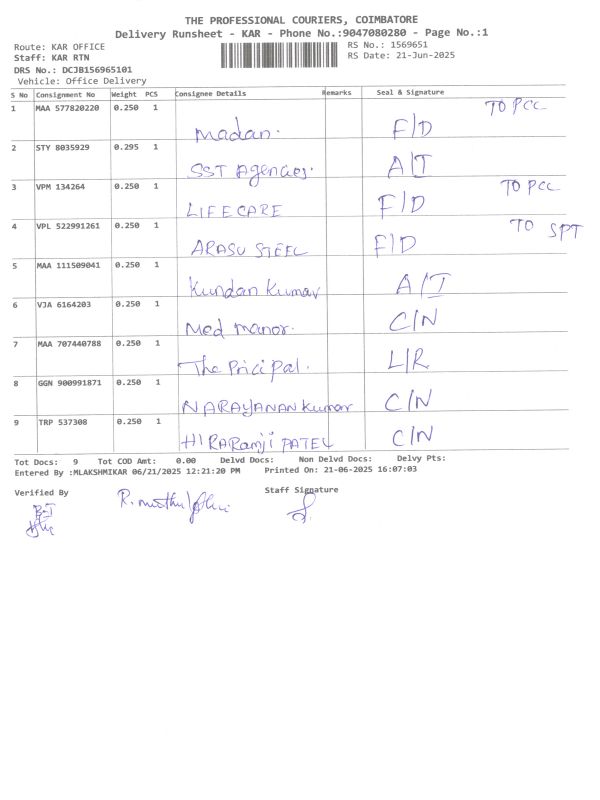 THE PROFESSIONAL COURIERS, COIMBATORE
Delivery Runsheet - KAR - Phone No.:9047080280 - Page No.:1
Route: KAR OFFICE RS No.: 1569651
Staff: KAR RTN RS Date: 21-Jun-2025
DRS No.: DCJB156965101
Vehicle: Office Delivery
S No Consignment No Weight PCS Consignee Details Remarks Seal & Signature
1 MAA 577820220 0.250 1 Madan. F/D TO PCC
2 STY 8035929 0.295 1 SST Agencies. A/T
3 VPM 134264 0.250 1 LIFE CARE F/D TO PCC
4 VPL 522991261 0.250 1 ARASU STEEL F/D TO SPT
5 MAA 111509041 0.250 1 Kundan Kumar A/T
6 VJA 6164203 0.250 1 Med manor. C/N
7 MAA 707440788 0.250 1 The Pricipal. L/R
8 GGN 900991871 0.250 1 NARAYANAN Kumar C/N
9 TRP 537308 0.250 1 HIRARamji PATEL C/N
Tot Docs: 9 Tot COD Amt: 0.00 Delvd Docs: Non Delvd Docs: Delvy Pts:
Entered By :MLAKSHMIKAR 06/21/2025 12:21:20 PM Printed On: 21-06-2025 16:07:03
Verified By Staff Signature